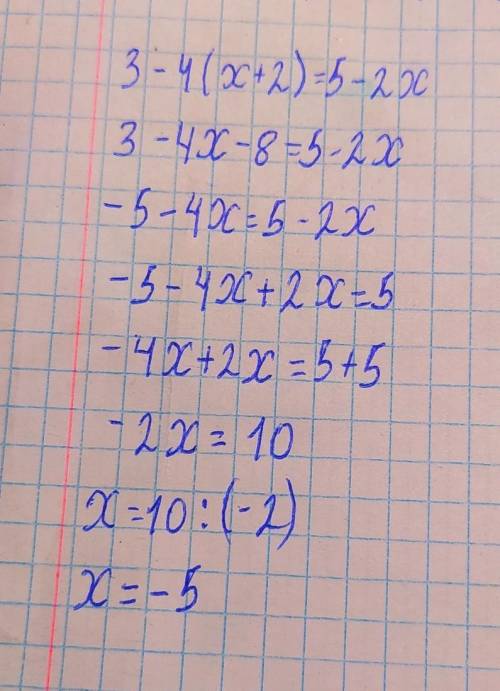 3 - 4(x+2)=5-2x
3 -4x-8=5-2x
-5-4x=5-2x
-5-4x+2x=5
-4x+2x=5+5
-2x=10
x=10:(-2)
x=-5